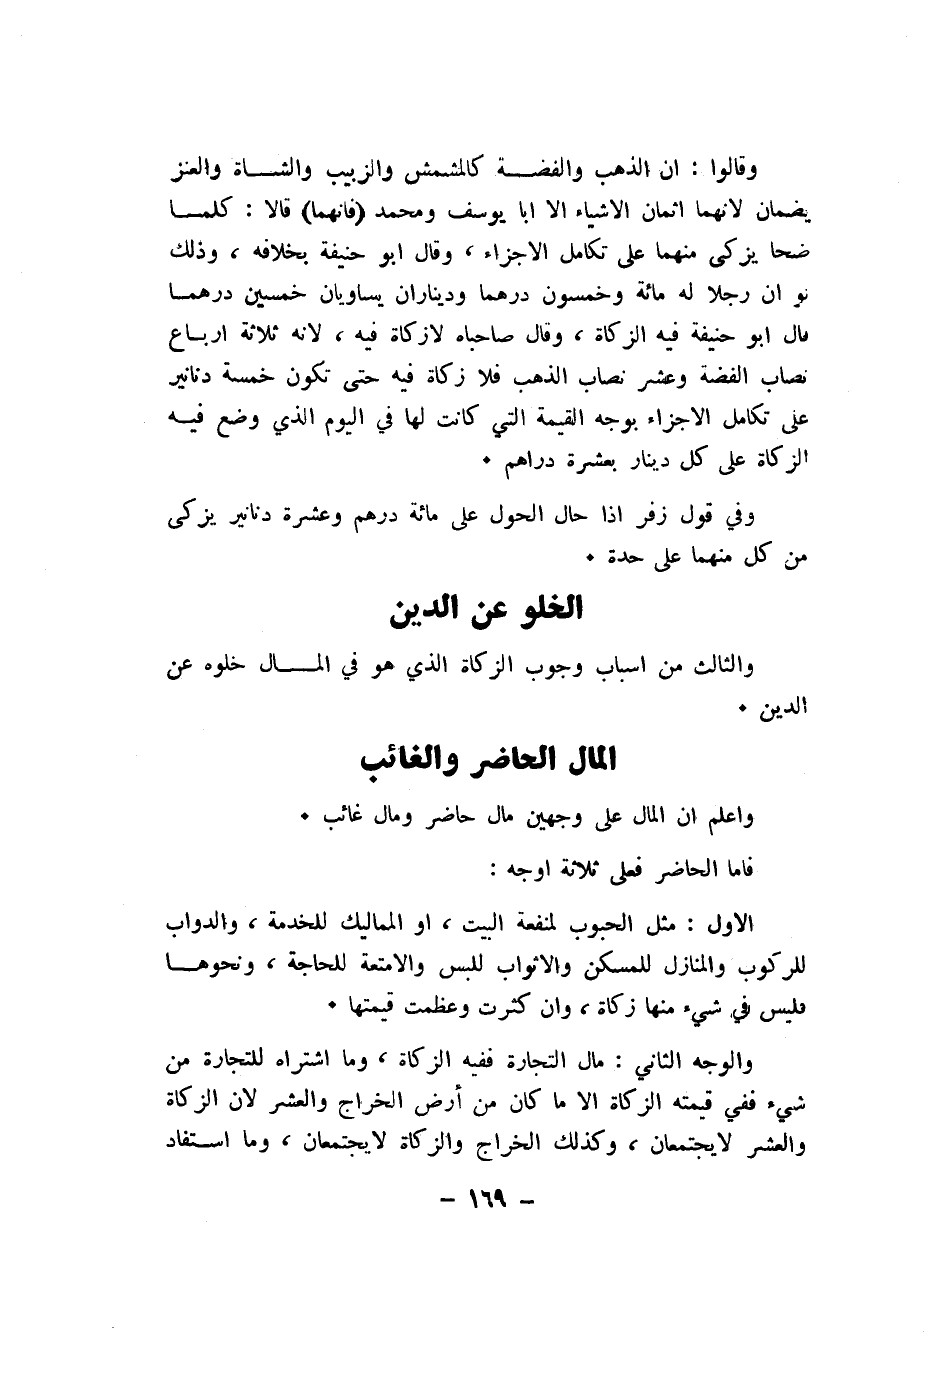 وقالوا : ان الذهب والفضة كالمشمش والزبيب والشاة والعنز
يضمان لانهما اثمان الاشياء الا ابا يوسف ومحمد (فانهما) قالا : كلما
ضحا يزكى منهما على تكامل الاجزاء ، وقال ابو حنيفة بخلافه ، وذلك
نو ان رجلا له مائة وخمسون درهما وديناران يساويان خمسين درهما
قال ابو حنيفة فيه الزكاة ، وقال صاحباه لازكاة فيه ، لانه ثلاثة ارباع
نصاب الفضة وعشر نصاب الذهب فلا زكاة فيه حتى تكون خمسة دنانير
على تكامل الاجزاء بوجه القيمة التي كانت لها في اليوم الذي وضع فيه
الزكاة على كل دينار بعشرة دراهم •
وفي قول زفر اذا حال الحول على مائة درهم وعشرة دنانير يزكى
من كل منهما على حدة •
الخلو عن الدين
والثالث من اسباب وجوب الزكاة الذي هو في المال خلوه عن
الدين •
المال الحاضر والغائب
واعلم ان المال على وجهين مال حاضر ومال غائب •
فاما الحاضر فعلى ثلاثة اوجه :
الاول : مثل الحبوب لمنفعة البيت ، او المماليك للخدمة ، والدواب
للركوب والمنازل للمسكن والاثواب للبس والامتعة للحاجة ، ونحوها
فليس في شيء منها زكاة ، وان كثرت وعظمت قيمتها •
والوجه الثاني : مال التجارة ففيه الزكاة ، وما اشتراه للتجارة من
شيء ففي قيمته الزكاة الا ما كان من أرض الخراج والعشر لان الزكاة
والعشر لايجتمعان ، وكذلك الخراج والزكاة لايجتمعان ، وما استفاد
– ١٦٩ –